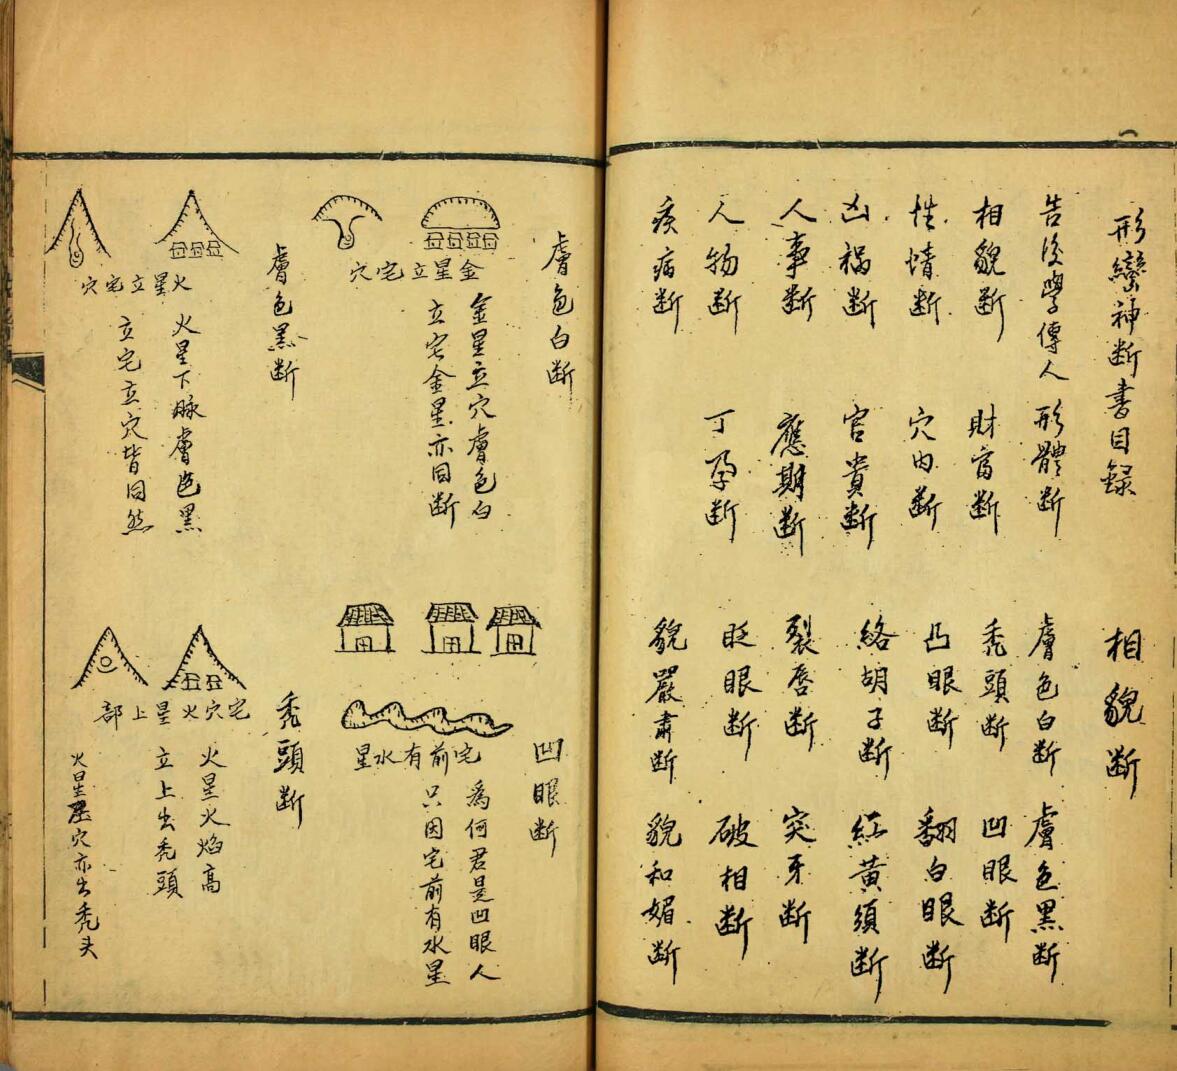 形巒神断書目録
告後學傳人
相貌断
性情断
凶禍断
人事断
人物断
疾病断
形體断
財富断
穴内断
官貴断
應期断
丁孕断
相貌断
膚色白断
禿頭断
凸眼断
絡胡子断
裂唇断
眨眼断
貌嚴肅断
膚色黑断
凹眼断
翻白眼断
紅黃須断
突牙断
破相断
貌和媚断
膚色白断
金星立宅穴
金星立穴膚色白
立宅金星亦同断
膚色黑断
火星立宅穴
火星下脉膚色黑
立宅立穴皆同然
凹眼断
宅前有水星
為何君是凹眼人
只因宅前有水星
禿頭断
宅穴火星上部
火星火焰高
立上出禿頭
火星 穴亦出禿头